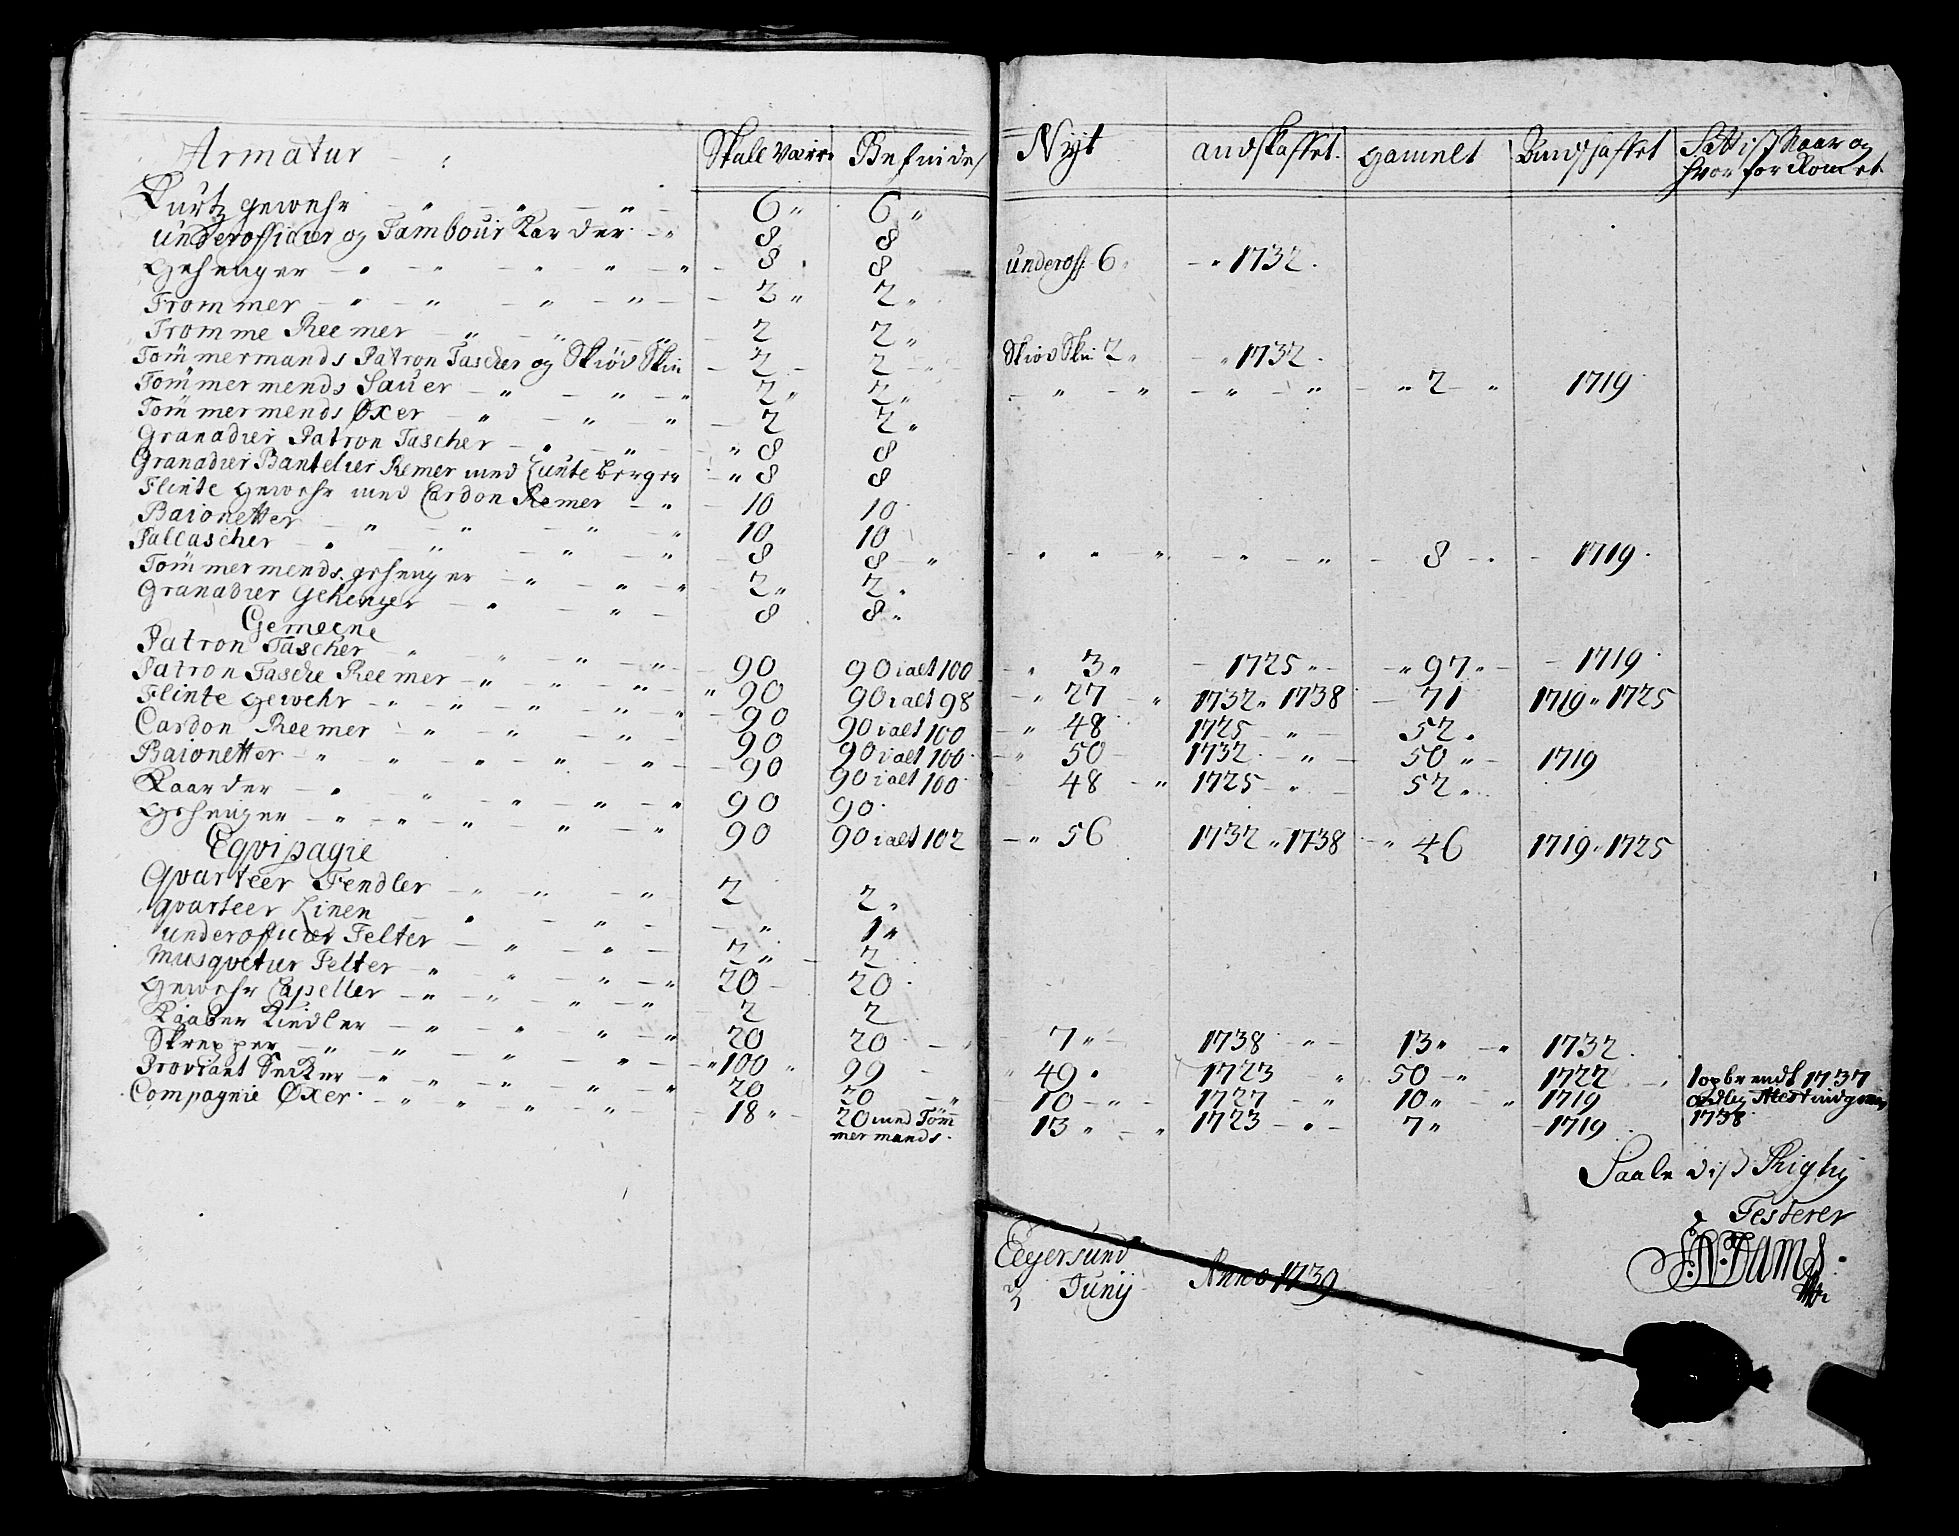 Armatur Skall være Befindes Nyt andskaffet gamelt andskaffet
hvor for Komet
Kurtz gewehr 6 6
underofficier og Tambour Karder 8 8
gehenger 8 8 underoff 6 1732
Trommer 2 2
Tromme Reemer 2 2
Tommermands Patron Tascher og Skiøv Skin 2 2 Skiøv Skin 2 1732
Tommermends Sauer 2 2 2 1719
Tommermends Øxer 2 2
Granadier Patron Tascher 8 8
Granadier Bantelier Remer med Lunte berger 8 8
Flinte gewehr med Cardon Remer 10 10
Baionetter 10 10
Pallascher 8 8 8 1719
Tommermends gehenger 2 2
Granadier Gehenger 8 8
Gemeene
Patron Tascher 90 90 i alt 100 3 1725 97 1719
Patron Tasche Reemer 90 90 i alt 98 27 1732 1738 71 1719 1725
Flinte gewehr 90 90 i alt 100 48 1725 52
Cardon Reemer 90 90 i alt 100 50 1732 50 1719
Baionetter 90 90 i alt 100 48 1725 52
Kaarder 90 90
gehenger 90 90 i alt 102 56 1732 1738 46 1719 1725
Eqvipagie
Qvarteer Fendler 2 2
qvarteer Linen 1
underofficier Telter 2 2
Musqvetur Telter 20 20
gewehr Capeller 2 2
Kaaber Kiedler 20 20 7 1738 13 1732
Skrepper 100 99 49 1723 50 1722 1 opbrendt 1737
Proviant Secker 20 20 10 1727 10 1719
Compagnie Øxer 18 20 med Tom 13 1723 7 1719 1738
mermands
Saale Rigtig
Testerer
Eegersund
3 Junij Anno 1739